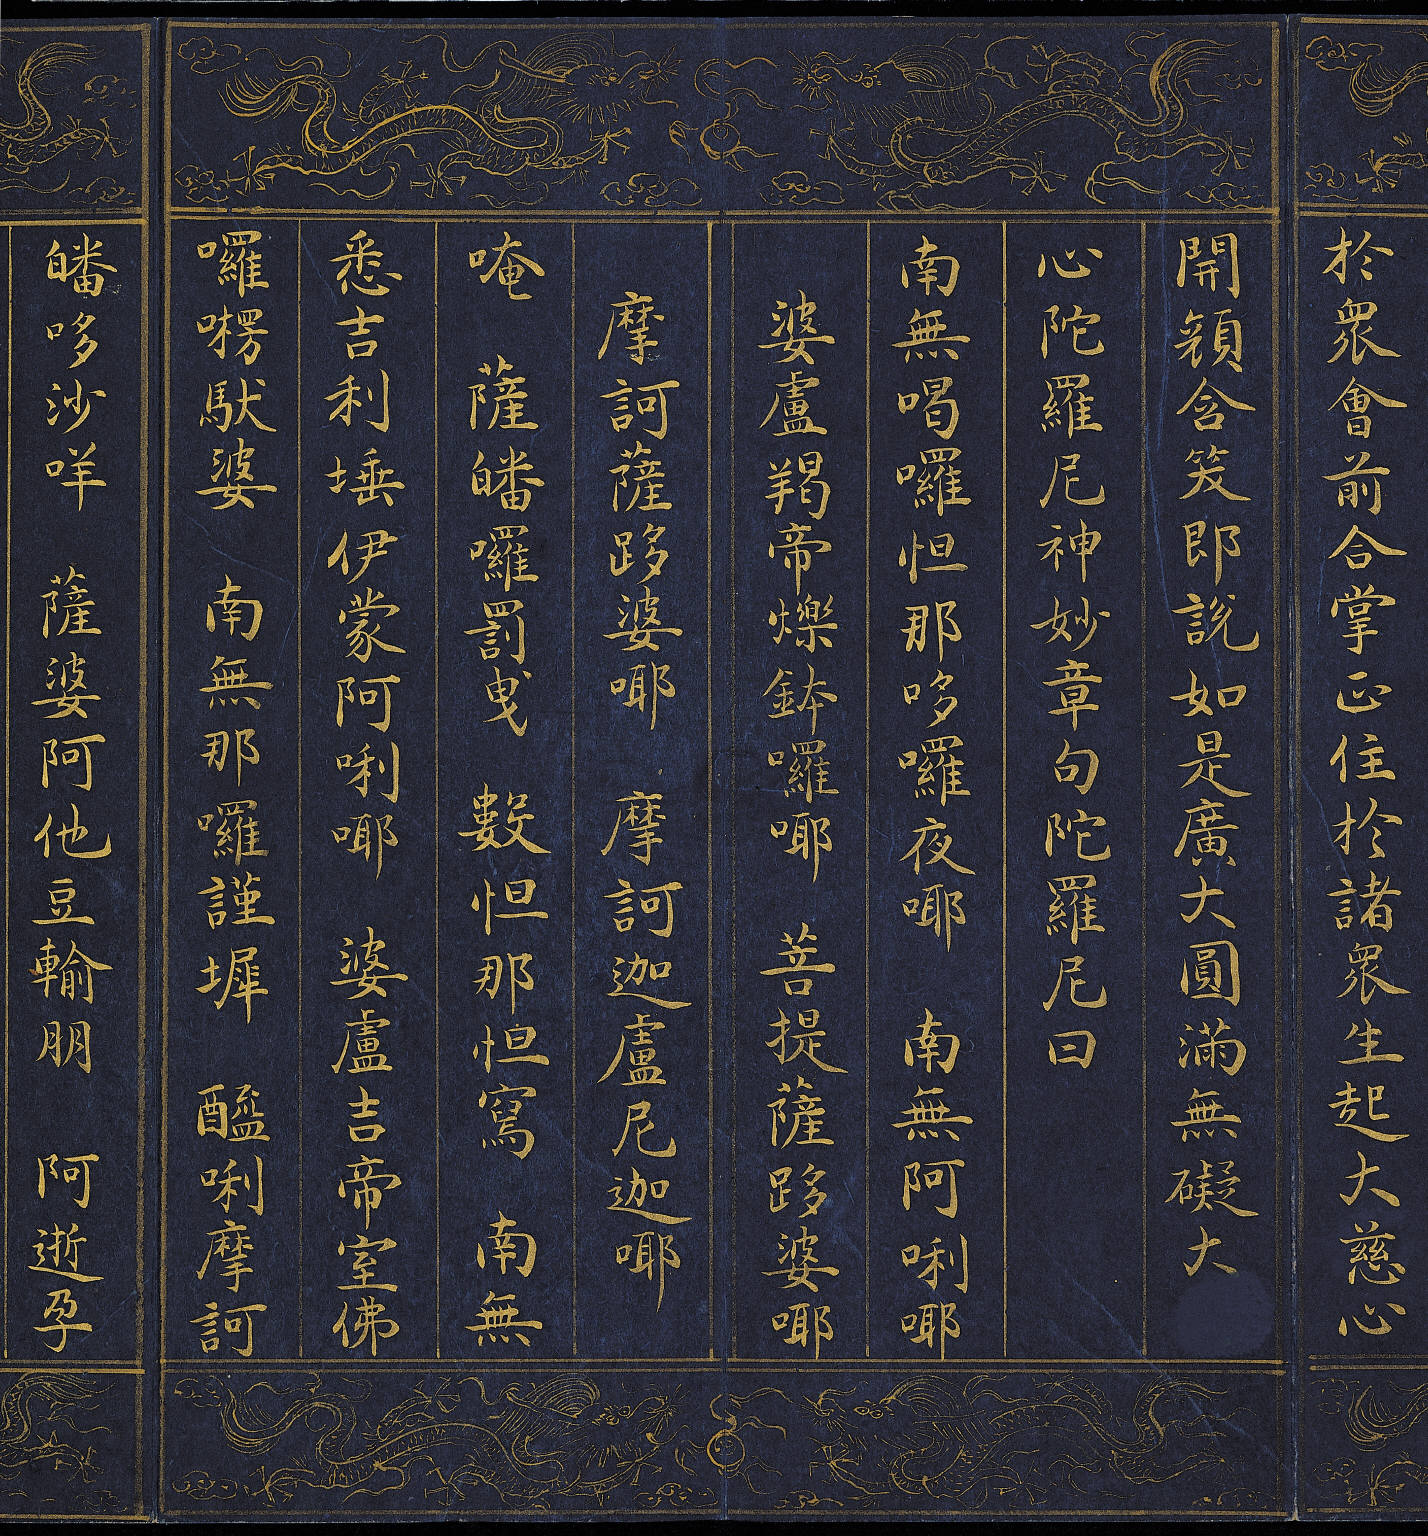 於衆會前合掌正住於諸衆生起大慈心
開顔含笑即說如是廣大圓滿無礙大
心陀羅尼神妙章句陀羅尼曰
南無喝囉怛那哆囉夜耶　南無阿唎耶
婆盧羯帝爍鉢囉耶　菩提薩跢婆耶
摩訶薩跢婆耶　摩訶迦盧尼迦耶
唵　薩皤囉罰曳　數怛那怛寫　南無
悉吉利埵伊蒙阿唎耶　婆盧吉帝室佛
囉楞馱婆　南無那囉謹墀　醯唎摩訶
皤哆沙咩　薩婆阿他豆輸朋　阿逝孕